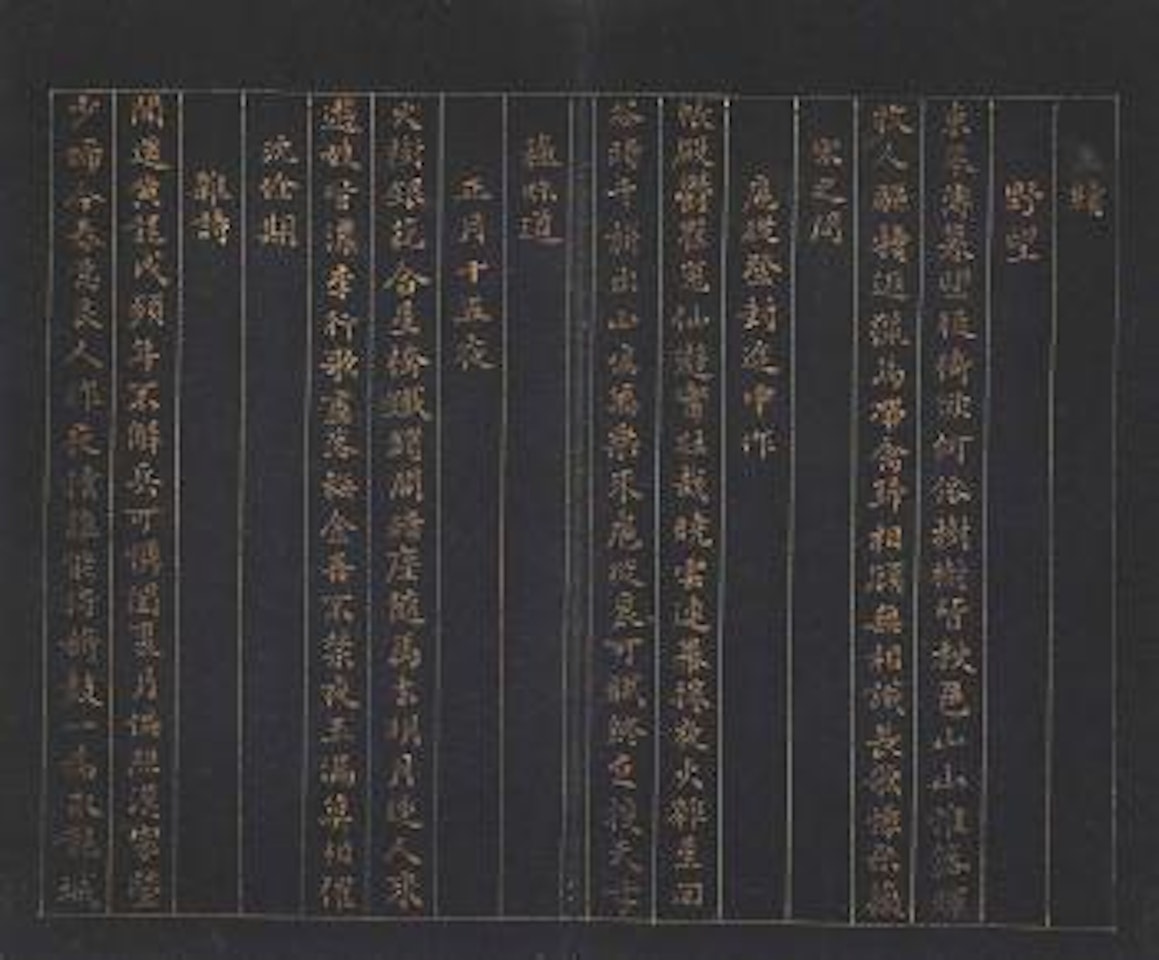 王績
野望
東皋薄暮望徙倚欲何依樹樹皆秋色山山惟落暉
牧人驅犢返獵馬帶禽歸相顧無相識長歌懷采薇
宋之問
扈從登封途中作
帳殿鬱崔嵬仙遊實壯哉曉雲連幕捲夜火雜星回
谷暗千旂出山鳴萬乘來扈從良可賦終乏掞天才
蘇味道
正月十五夜
火樹銀花合星橋鐵鎖開暗塵隨馬去明月逐人來
遊妓皆穠李行歌盡落梅金吾不禁夜玉漏莫相催
沈佺期
雜詩
聞道黃龍戍頻年不解兵可憐閨裏月偏照漢家營
少婦今春意良人昨夜情誰能將旗鼓一為取龍城